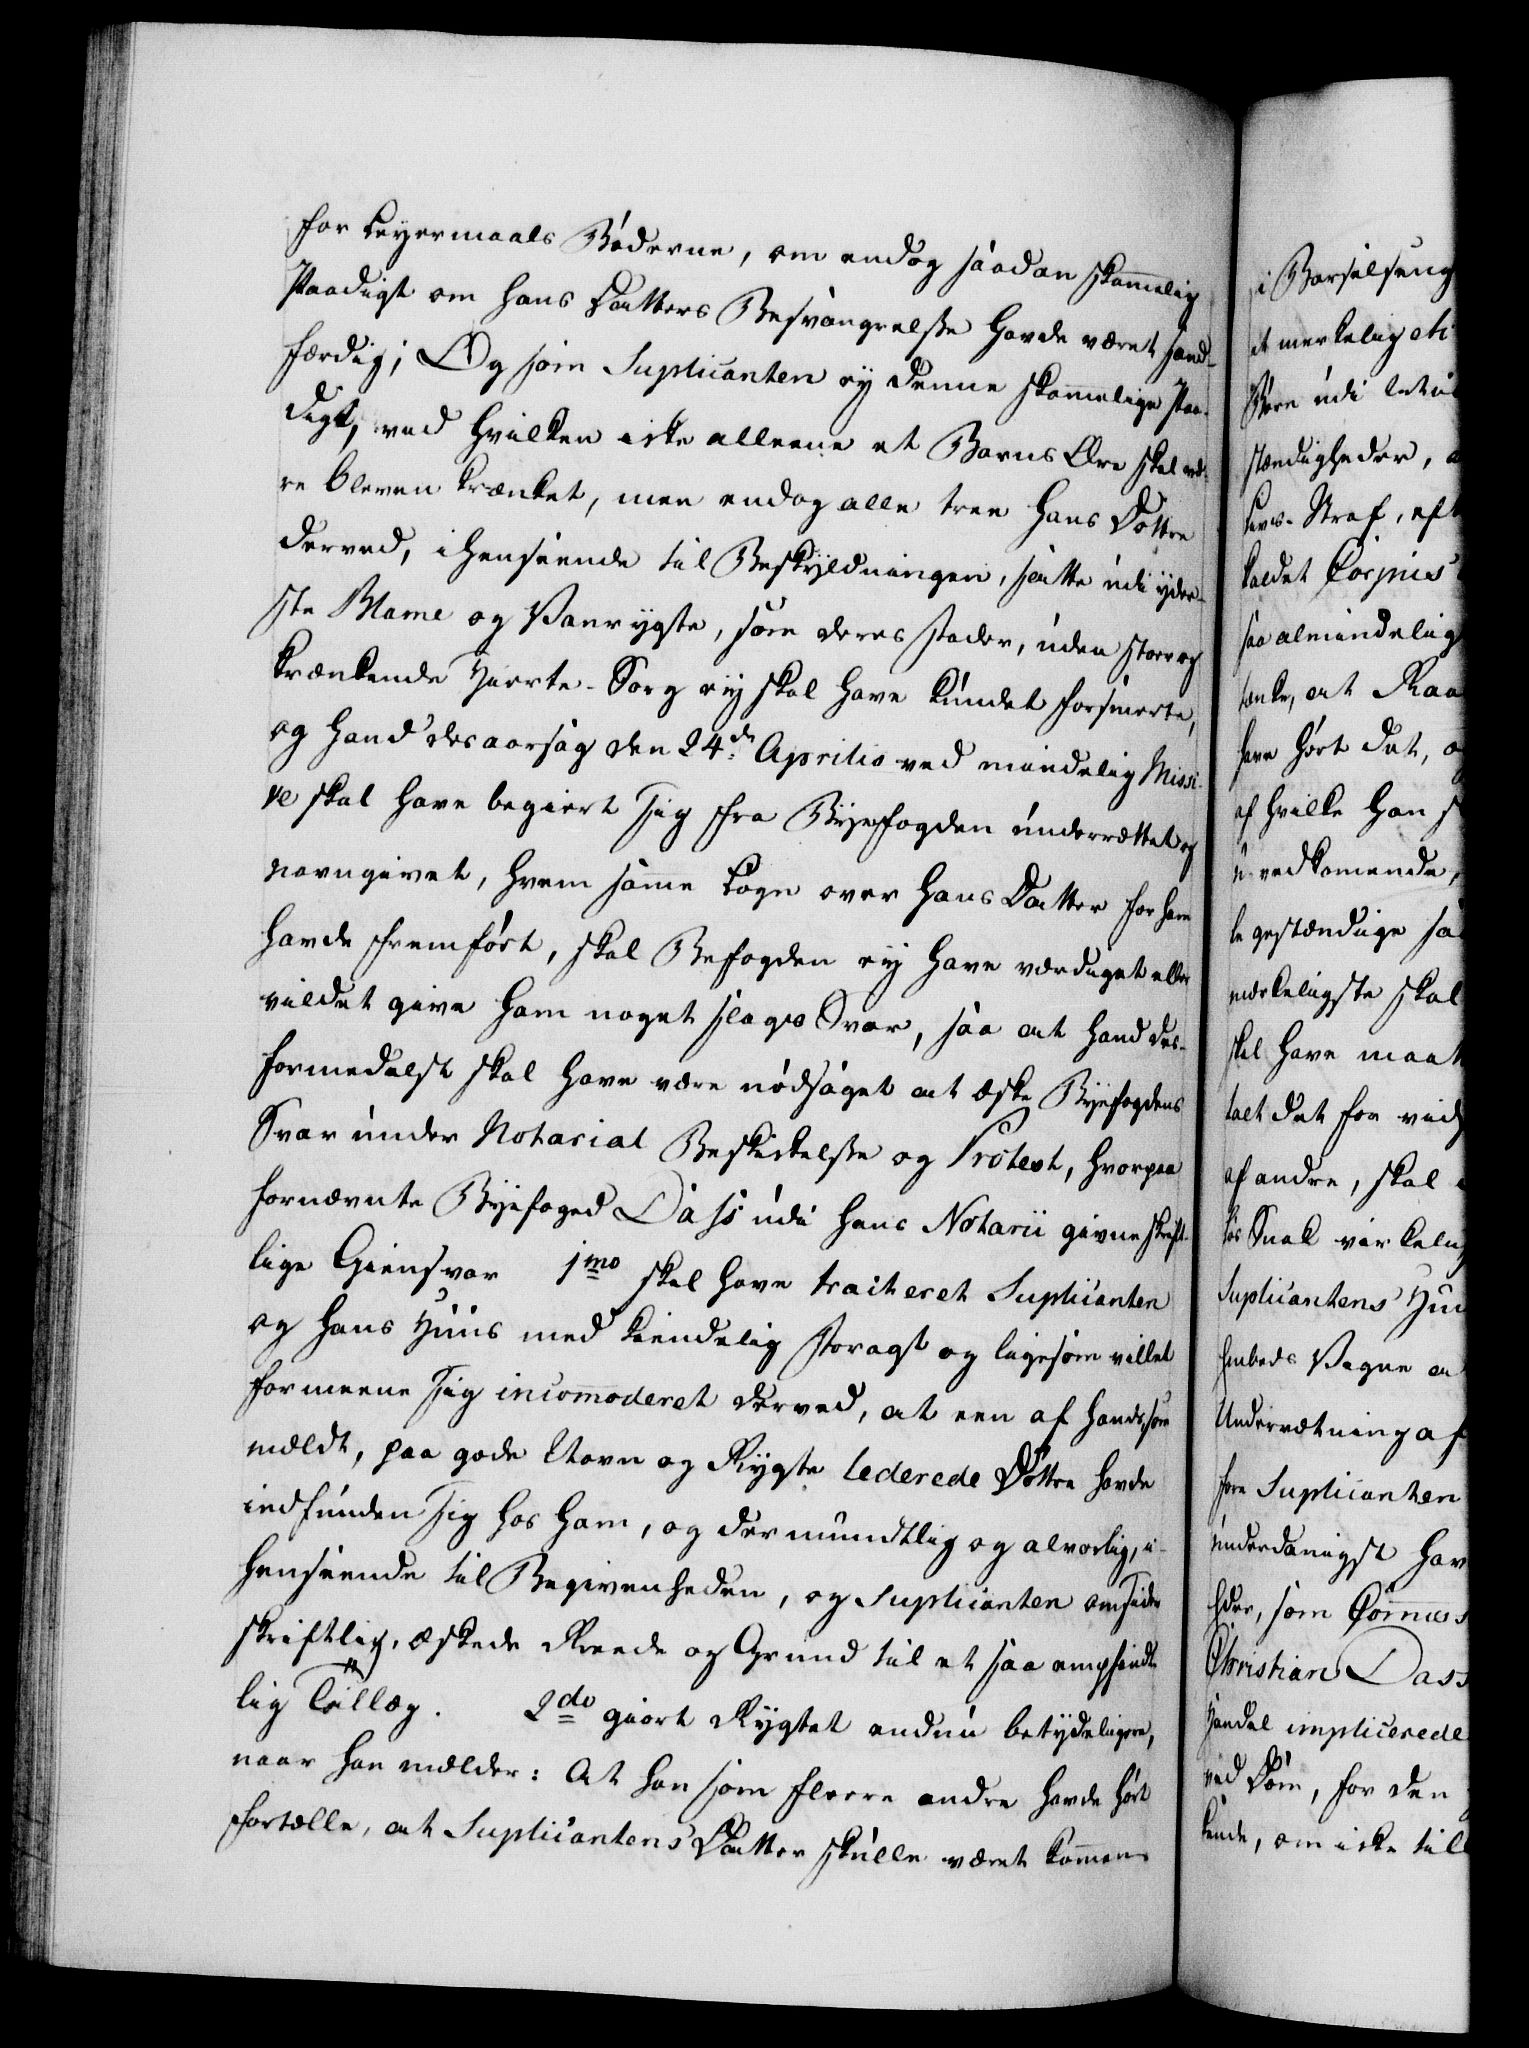 for Leyermaals Bøderne, om endog saadan skam̄elig
Paadigt om hans Datters Besvangrelse havde været sand-
færdig; Og som Suplicanten ey denne skam̄elige Paa-
digt, ved hvilken icke alleene et Barns Ære skal væ-
re bleven krænket, men endog alle tree hans Døttre
derved, i henseende til Beskyldningen, satte udi yder-
ste Blame og Vanrygte, som deres Fader, uden stor og
krænkende Hierte-Sorg ey skal have kundet forsmerte,
og hand desaarsag den 24de Aprilis ved mindelig Missi-
ve skal have begiert sig fra Byefogden underrættet og
navngivet, hvem sam̄e Løgn over hans Datter for ham
havde fremført, skal Befogden ey have værdiget eller
vildet give ham noget slags Svar, saa at hand des-
formedelst skal have være nødsaget at æske Byefogdens
Svar under Notarial Beskickelse og Protest, hvorpaa
fornævnte Byefoged Dass udi hans Notarii givne skrift-
lige Giensvar 1mo skal have traiteret Suplicanten
og hans Huus med kiendelig Foragt og ligesom villet
formeene sig incom̄oderet derved, at een af hands, som
meldt, paa gode Navn og Rygte lederede Døttre havde
indfunden sig hos ham, og der mundtlig og alvorlig, i-
henseende til Begivenheden, og Suplicanten omsider
skriftlig, æskede Reede og Grund til et saa empfindt-
lig Tillæg. 2do giort Rygtet endnu betydeligere,
naar han melder: At han som fleere andre havde hørt
fortælle, at Suplicantens Datter skulle været kom̄en
i Barselseng
et merkelig
Børn udi
stændigheder,
Livs-Straf, eft
kaldet Corpus
saa almindelig
tænke, at Raa
have hørt det,
af hvilke han
u-vedkom̄ende,
le gestændige
merkeligste skal
skal have maat
talt det for
af andre, skal
Snak virkelig
Suplicantens
Embeds Vegne
Underrætning af
fore Suplicanten
underdanigst hav
som
Christian Dass
Handel implicerede
ved Dom, for den
kiende, om icke till